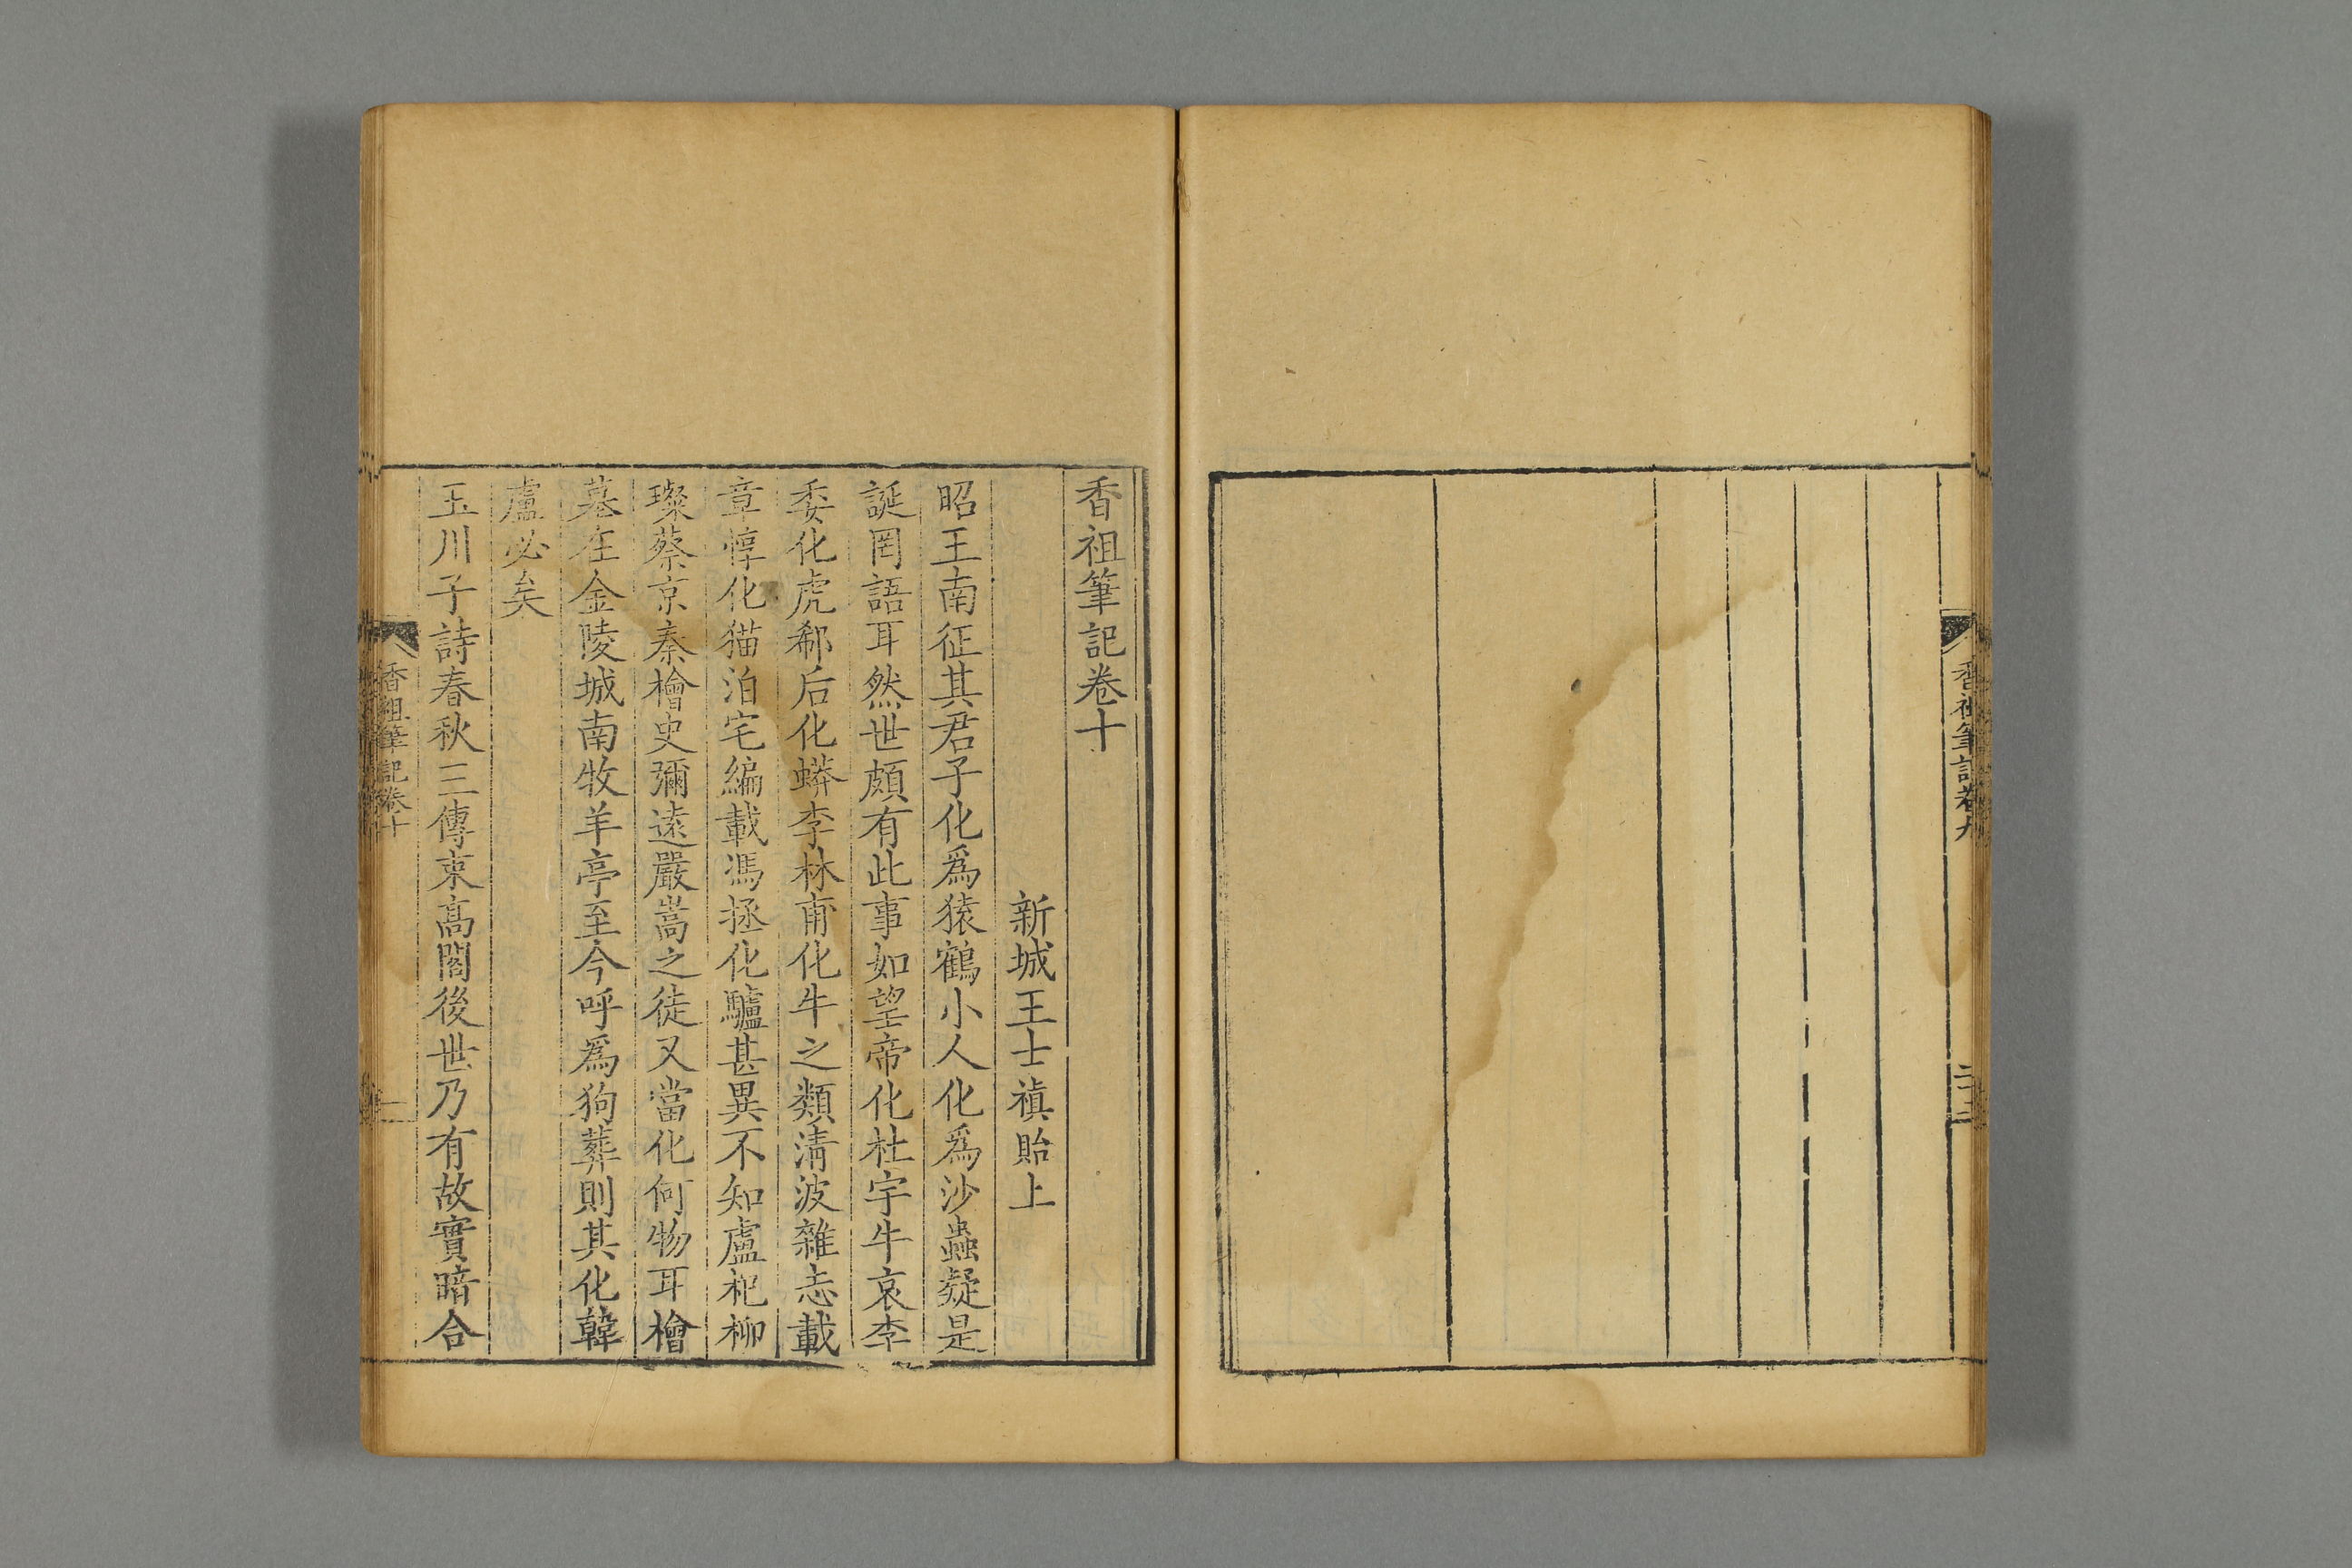 香祖筆記卷九
二十二
香祖筆記卷十
新城王士禛貽上
昭王南征其君子化爲猿鶴小人化爲沙蟲疑是
誕罔語耳然世頗有此事如望帝化杜宇牛哀李
委化虎郗后化蟒李林甫化牛之類清波雜志載
章惇化猫泊宅編載馮拯化驢甚異不知盧杞柳
璨蔡京秦檜史彌遠嚴嵩之徒又當化何物耳檜
墓在金陵城南牧羊亭至今呼爲狗葬則其化韓
盧必矣
玉川子詩春秋三傳束高閣後世乃有故實暗合
香祖筆記卷十
一